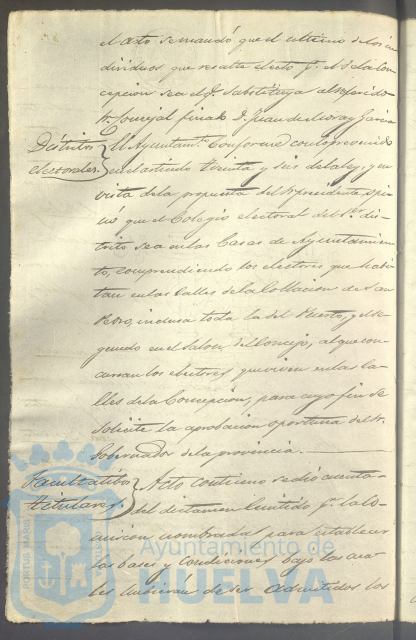 el acto se mandó que el último de los in
dividuos que resulte electo p.r el de la Con
cepcion sea el q. substituya al referido
Sr. Concejal final D. Juan de Mora y Garcia
Distritos electorales. El Ayuntam.to Conforme con lo prevenido
en el articulo treinta y seis de la ley, y en
vista de la propuesta del Sr. presidente, opi
nó que el Colegio electoral del 1.er dis
trito sea en las Casas de Ayuntamien
to, comprendiendo los electores que habi
tan en las Calles de la Collacion de San
Pedro, inclusa toda la del Puerto, y el se
gundo en el Salon del Concejo, al que con
curran los electores que viven en las Ca
lles de la Concepcion, para cuyo fin se
solicite la aprobacion oportuna del Sr.
Gobernador de la provincia.
Facultativos titulares. Acto continuo se dió cuenta
del dictamen emitido p.r la Co
mision nombrada para establecer
las bases y condiciones bajo las cua
les hubieran de ser admitidos los
Ayuntamiento de
HUELVA
PORTUS MARIS